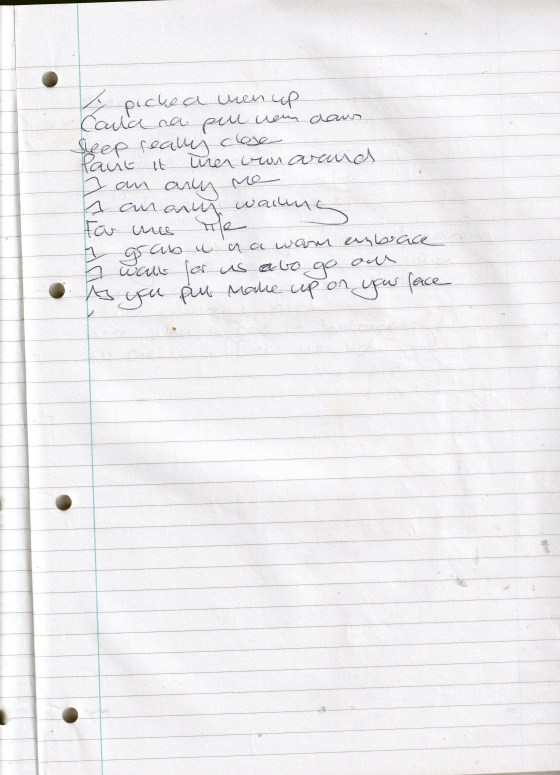 I picked them up
Could not put them down
Sleep really close
Paint it then turn around
I am only me
I am only waiting
For this life
I grab it in a warm embrace
I wait for us to go out
As you put make up on your face